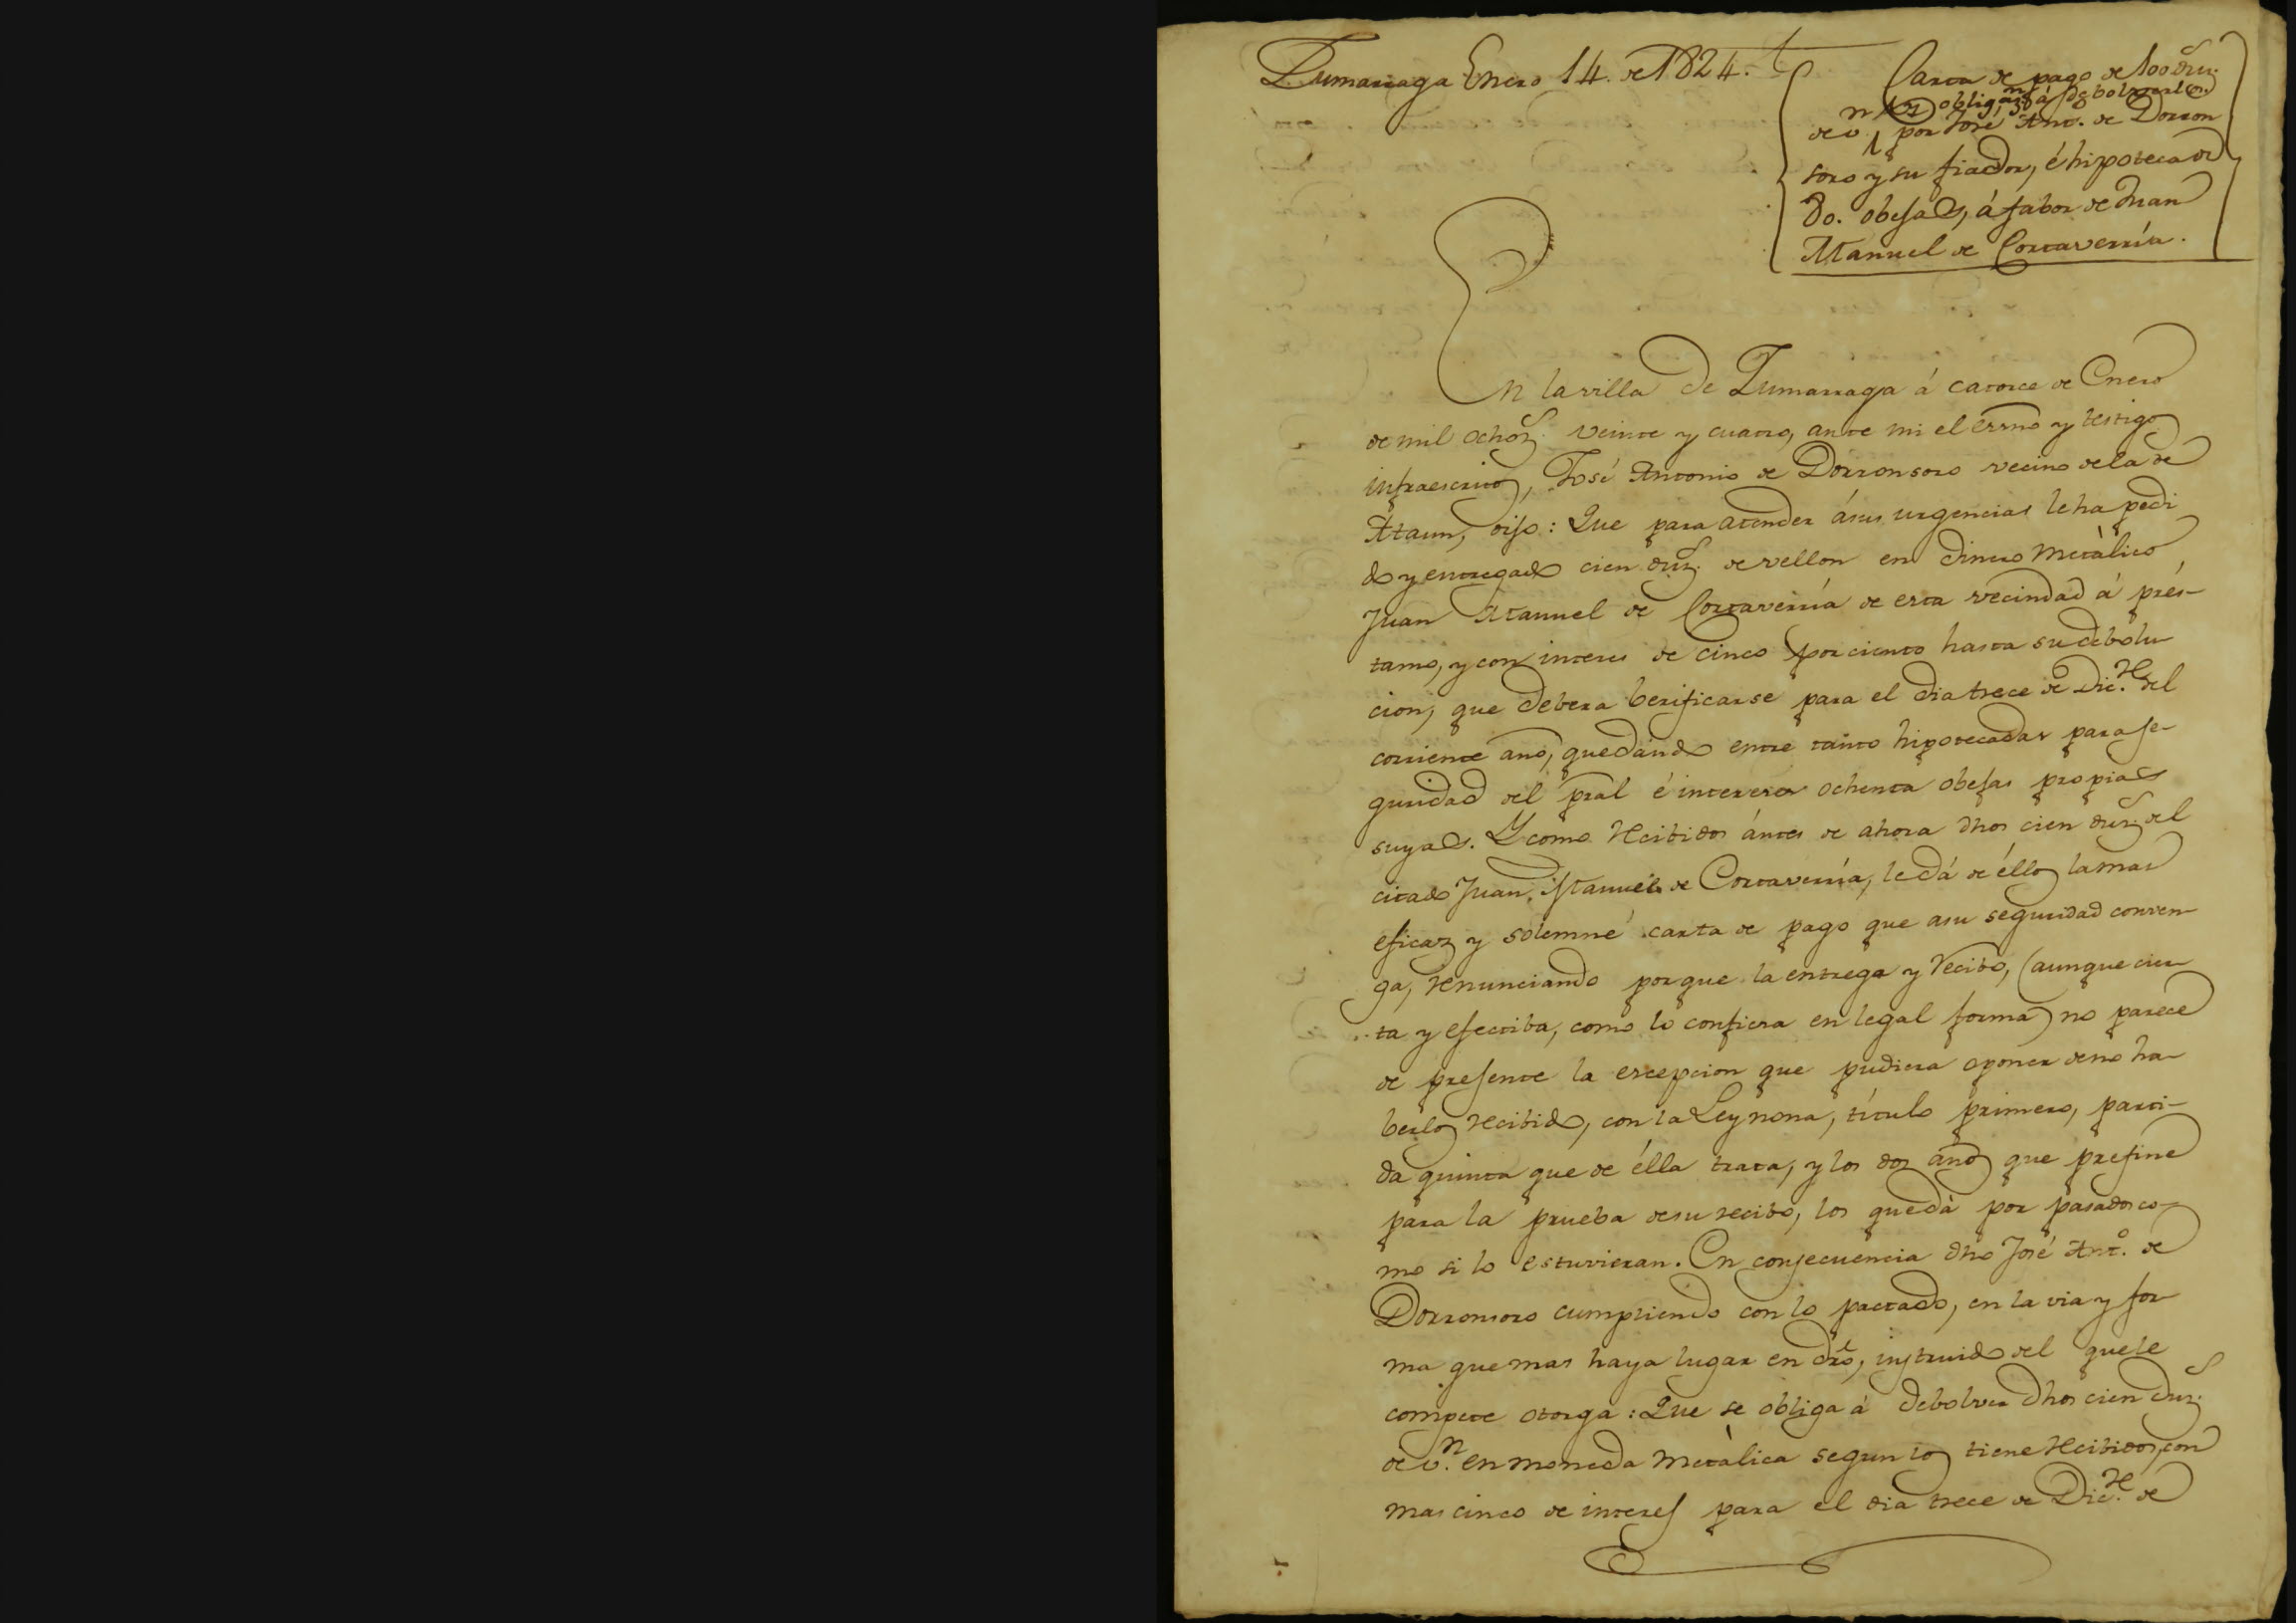 Zumarraga Enero 14. de 1824.
Carta de pago de 100 duz.
de v.n y obligaz.n á debolverlos
por José Ant.o de Dorron
soro y su fiador, é hipoteca de
80. obejas, á fabor de Juan
Manuel de Cortaverría.
En la villa de Zumarraga á catorce de Enero
de mil ochoz.s veinte y cuatro, ante mi el essno y testigos
infraescritos, José Antonio de Dorronsoro vecino de la de
Ataun, dijo: Que para atender á sus urgencias le ha pedi
do y entregado cien duz.s de vellon en dinero metálico
Juan Manuel de Cortaverría de esta vecindad á prés-
tamo, y con interes de cinco por ciento hasta su debolu
cion, que debera berificarse para el dia trece de Dic.re del
corriente año, quedando entre tanto hipotecadas para se-
guridad del pral é intereses ochenta obejas propias
suyas. Y como recibidos ántes de ahora dhos cien duz.s del
citado Juan Manuel de Cortaverría, le dá de éllos la mas
eficaz y solemne carta de pago que a su seguridad conven
ga, renunciando por que la entrega y recibo, (aunque cier
ta y efectiba, como lo confiesa en legal forma) no parece
de presente la escepcion que pudiera oponer de no ha-
berlos recibido, con la Ley nona, título primero, parti-
da quinta que de élla trata, y los dos años que prefine
para la prueba de su recibo, los que dá por pasados co-
mo si lo estuvieran. En consecuencia dho José Ant.o de
Dorronsoro cumpliendo con lo pactado, en la via y for
ma que mas haya lugar en dro, instruido del que le
compete otorga: Que se obliga á debolver dhos cien duz.s
de v.n en moneda metálica segun los tiene recibidos, con
mas cinco de interes para el dia trece de Dic.re de